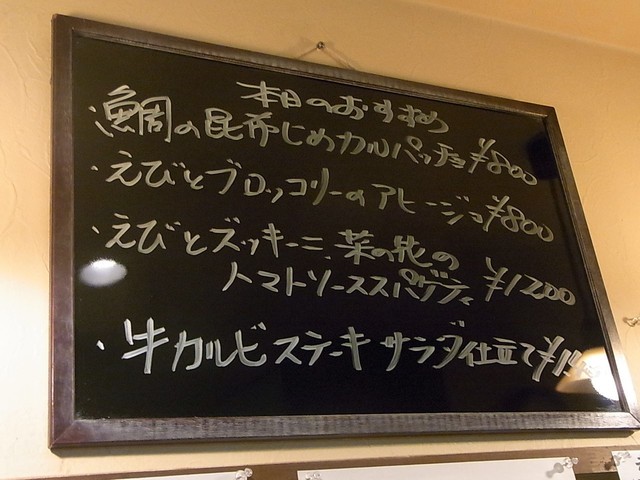 本日のおすすめ
・鯛の昆布じめカルパッチョ ¥800
・えびとブロッコリーのアヒージョ ¥800
・えびとズッキーニ、菜の花の
トマトソーススパゲティ ¥1200
・牛カルビステーキサラダ仕立て